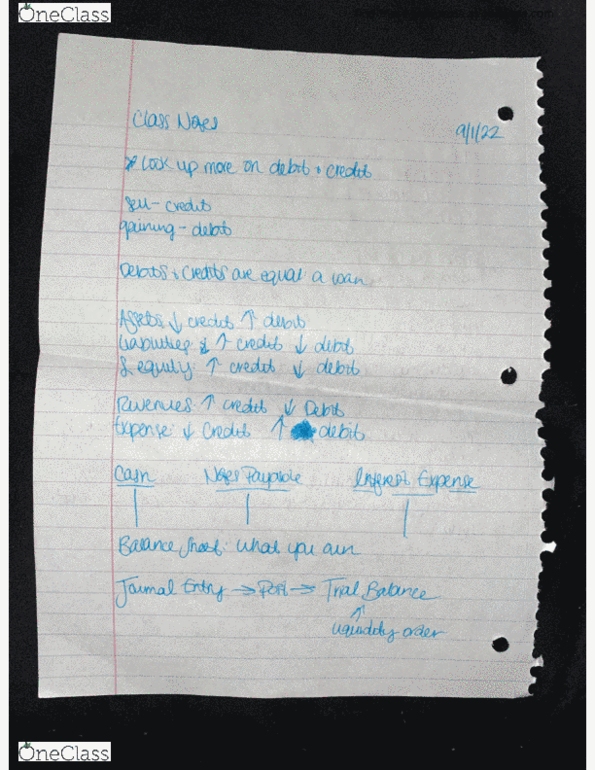 OneClass
Class Notes
9/1/22
* Look up more on debit + credit
sell - credit
gaining - debit
Debits + credits are equal a loan
Assets ↓ credit ↑ debit
Liabilities ↑ credit ↓ debit
S. equity: ↑ credit ↓ debit
Revenues: ↑ credit ↓ Debit
Expense: ↓ Credit ↑ debit
Cash Notes Payable Interest Expense
Balance Sheet: what you own
Journal Entry → Post → Trial Balance
↑
liquidity order
OneClass